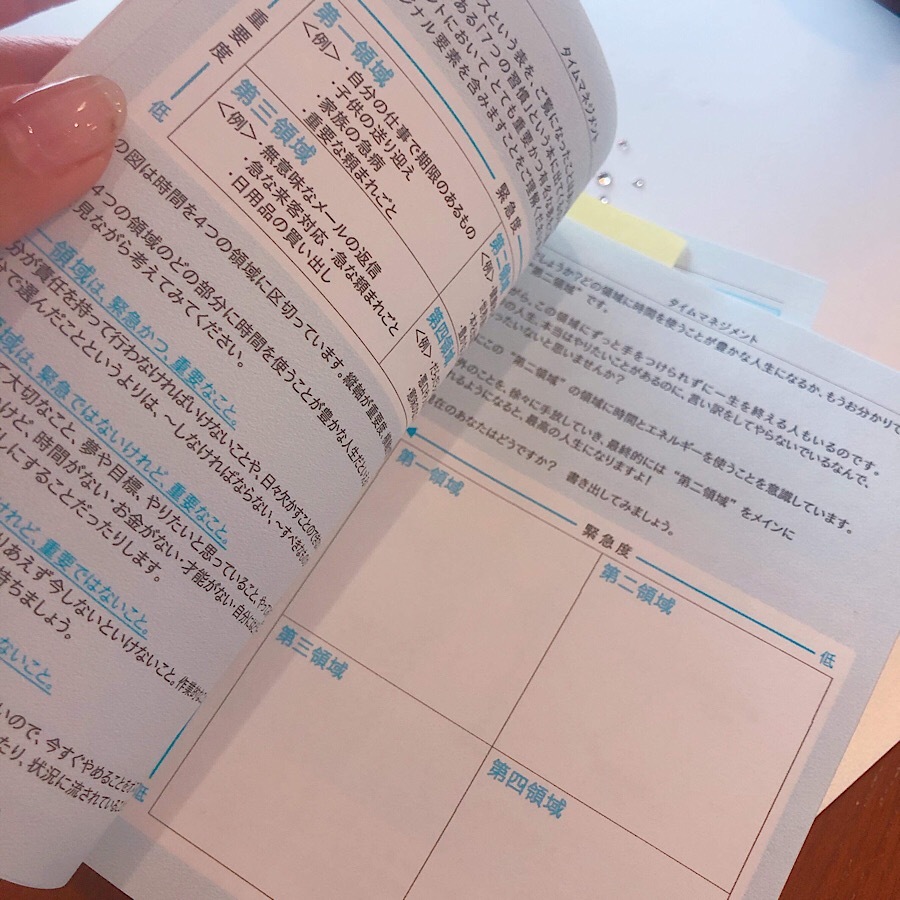 タイムマネジメント
スという表を、ご覧になったことは
ある「7つの習慣」という本に出
ントにおいて、とても重要かつ
ジナル要素を含みますことをご理解
緊急度
重要度
低
第一領域
<例>
・自分の仕事で期限のあるもの
・子供の送り迎え
・家族の急病
・重要な頼まれごと
第二領
<例>
第三領域
<例>
・無意味なメールの返信
・急な来客対応・急な頼まれごと
・日用品の買い出し
第四領
<例>
の図は時間を4つの領域に区切っています。縦軸が重要度、
4つの領域のどの部分に時間を使うことが豊かな人生だと
見ながら考えてみてください。
領域は、緊急かつ、重要なこと。
分が責任を持って行わなければいけないことや、日々欠かすことの
で選んだことというよりは、〜しなければならない、〜すべき
域は、緊急ではないけれど、重要なこと。
て大切なこと、夢や目標、やりたいと思っていること、
けど、時間がない・お金がない・才能がない・自分に
しにすることだったりします。
けれど、重要ではないこと。
りあえず今しないといけないこと。作業
持ちましょう。
ないこと。
いので、今すぐやめること
たり、状況に流されている
低
タイムマネジメント
しょうか?どの領域に時間を使うことが豊かな人生になるか、もうお分かりで
"第二領域"です。
がら、この領域にずっと手をつけられずに一生を終える人もいるのです。
の人生、本当はやりたいことがあるのに、言い訳をしてやらないでいるなんて、
いたいないと思いませんか?
にこの"第二領域"の領域に時間とエネルギーを使うことを意識しています。
外のことを、徐々に手放していき、最終的には"第二領域"をメインに
れるようになると、最高の人生になりますよ!
在のあなたはどうですか? 書き出してみましょう。
緊急度
低
第一領域
第二領域
第三領域
第四領域